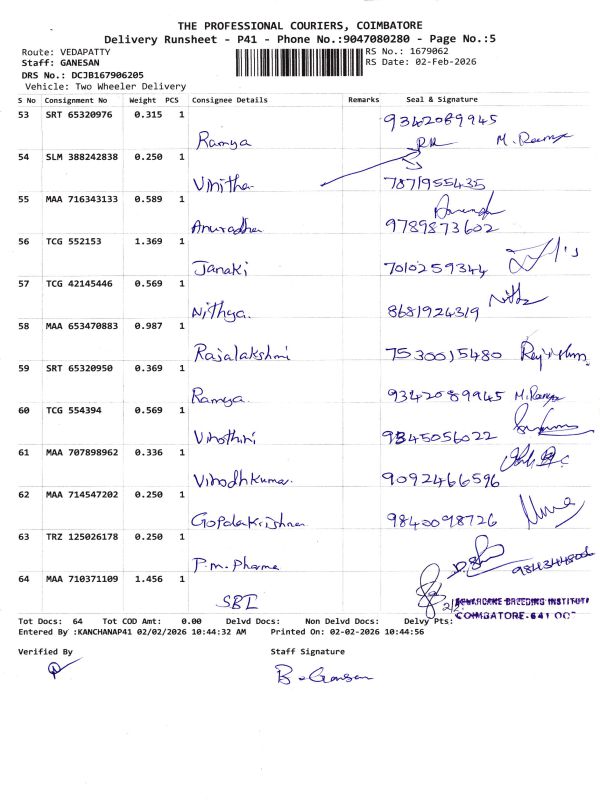 THE PROFESSIONAL COURIERS, COIMBATORE
Delivery Runsheet - P41 - Phone No.:9047080280 - Page No.:5
Route: VEDAPATTY RS No.: 1679062
Staff: GANESAN RS Date: 02-Feb-2026
DRS No.: DCJB167906205
Vehicle: Two Wheeler Delivery
S No Consignment No Weight PCS Consignee Details Remarks Seal & Signature
53 SRT 65320976 0.315 1 9342089945
Ramya M. Ramya
54 SLM 388242838 0.250 1
Vinitha 7871955435
55 MAA 716343133 0.589 1
Anuradha 9789873602
56 TCG 552153 1.369 1
Janaki 7010259344
57 TCG 42145446 0.569 1
Nithya. 8681924319
58 MAA 653470883 0.987 1
Rajalakshmi 7530015480
59 SRT 65320950 0.369 1
Ramya 9342089945 M.Ramya
60 TCG 554394 0.569 1
Virothini 9345056022
61 MAA 707898962 0.336 1
Vinodhkumar. 9092466596
62 MAA 714547202 0.250 1
Gopalakrishnan 9840098726
63 TRZ 125026178 0.250 1
P.m. Pharma
64 MAA 710371109 1.456 1
SBI BREEDING INSTITUTE
COIMBATORE-641 007
Tot Docs: 64 Tot COD Amt: 0.00 Delvd Docs: Non Delvd Docs: Delvy Pts:
Entered By :KANCHANAP41 02/02/2026 10:44:32 AM Printed On: 02-02-2026 10:44:56
Verified By Staff Signature
B. Ganesan